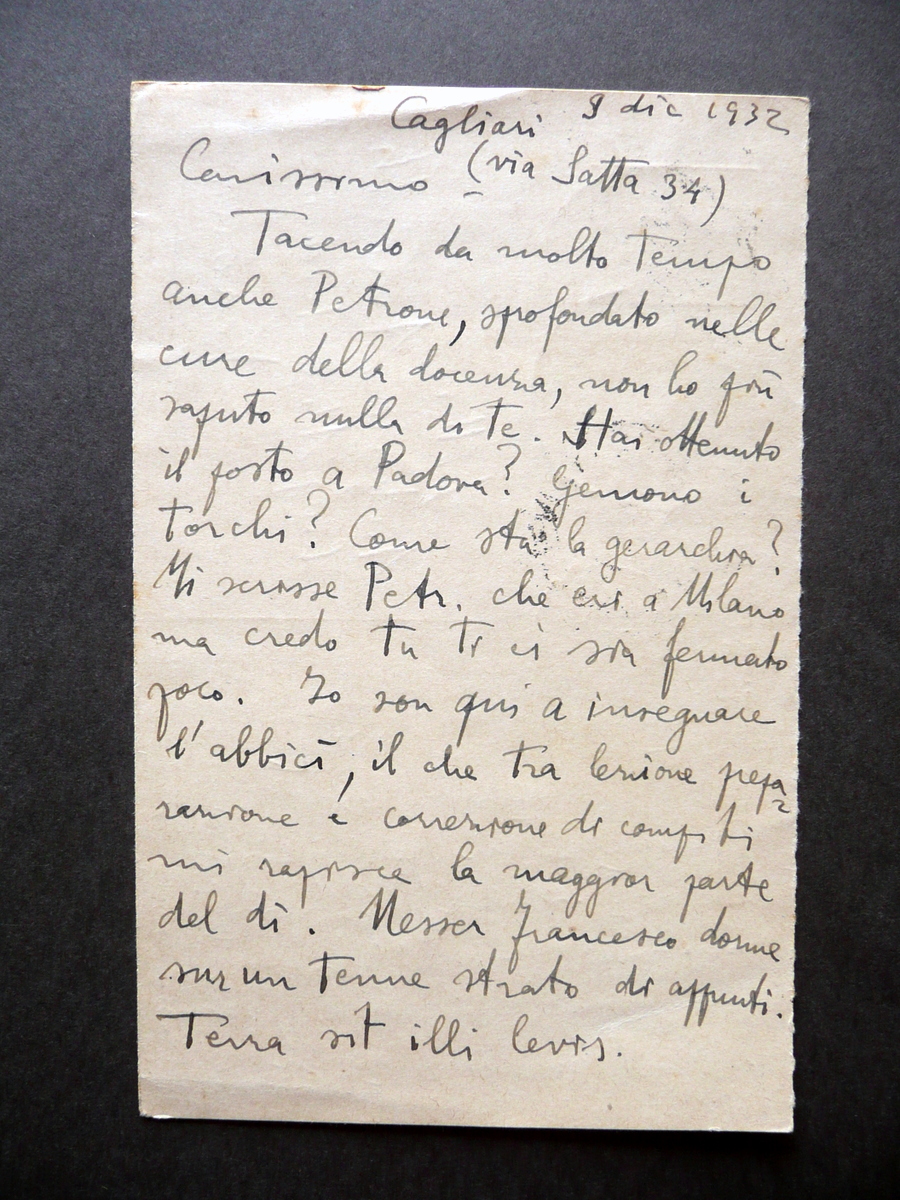 Cagliari 9 dic 1932
(via Satta 34)
Carissimo
Tacendo da molto tempo
anche Petrone, sprofondato nelle
cure della docenza, non ho più
saputo nulla di te. Hai ottenuto
il posto a Padova? Gemono i
torchi? Come sta la gerarchia?
Mi scrisse Petr. che eri a Milano
ma credo tu ti ci sia fermato
poco. Io son qui a insegnare
l'abbicì, il che tra lezione prepa
razione e correzione di compiti
mi rapisce la maggior parte
del dì. Messer Francesco dorme
sur un tenue strato di appunti.
Terra sit illi levis.